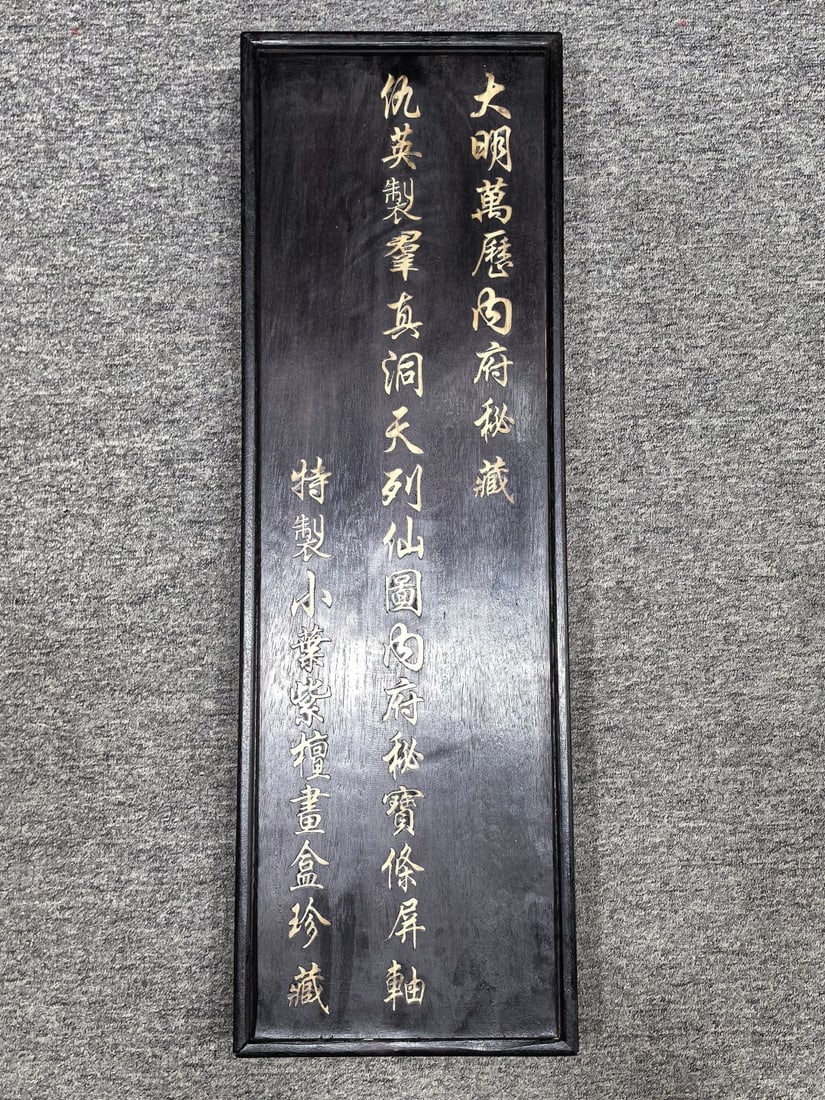 大明萬歷內府秘藏
仇英製羣真洞天列仙圖內府秘寶條屏軸
特製小葉紫檀畫盒珍藏